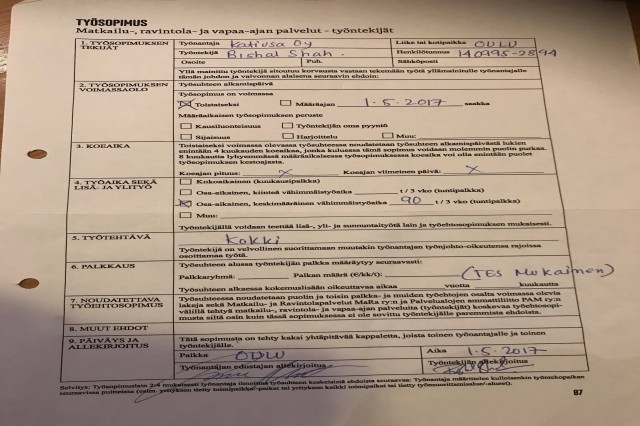 TYÖSOPIMUS
Matkailu-, ravintola- ja vapaa-ajan palvelut - työntekijät
1. TYÖSOPIMUKSEN TEKIJÄT
Työnantaja Katiusa Oy Liike tai kotipaikka OULU
Työntekijä Bishal Shah. Henkilötunnus 140995-2894
Osoite Puh. Sähköposti
Yllä mainittu työntekijä sitoutuu korvausta vastaan tekemään työtä yllämainitulle työnantajalle
tämän johdon ja valvonnan alaisena seuraavin ehdoin:
2. TYÖSOPIMUKSEN VOIMASSAOLO
Työsuhteen alkamispäivä
Työsopimus on voimassa
Toistaiseksi Määräajan 1.5.2017 saakka
Määräaikaisen työsopimuksen peruste
Kausiluonteisuus Työntekijän oma pyyntö
Sijaisuus Harjoittelu Muu:
3. KOEAIKA
Toistaiseksi voimassa olevassa työsuhteessa noudatetaan työsuhteen alkamispäivästä lukien
enintään 4 kuukauden koeaikaa, jonka kuluessa tämä sopimus voidaan molemmin puolin purkaa.
8 kuukautta lyhyemmässä määräaikaisessa työsopimuksessa koeaika voi olla enintään puolet
työsopimuksen kestoajasta.
Koeajan pituus: x Koeajan viimeinen päivä: x
4. TYÖAIKA SEKÄ LISÄ- JA YLITYÖ
Kokoaikainen (kuukausipalkka)
Osa-aikainen, kiinteä vähimmäistyöaika t / 3 vko (tuntipalkka)
Osa-aikainen, keskimääräinen vähimmäistyöaika 90 t / 3 vko (tuntipalkka)
Muu:
Työntekijällä voidaan teettää lisä-, yli- ja sunnuntaityötä lain ja työehtosopimuksen mukaisesti.
5. TYÖTEHTÄVÄ
Kokki
Työntekijä on velvollinen suorittamaan muutakin työnantajan työnjohto-oikeutensa rajoissa
osoittamaa työtä.
6. PALKKAUS
Työsuhteen alussa työntekijän palkka määräytyy seuraavasti:
Palkkaryhmä: Palkan määrä (€/kk/t): (TES Mukainen)
Työsuhteen alkaessa kokemuslisään oikeuttavaa aikaa vuotta kuukautta
7. NOUDATETTAVA TYÖEHTOSOPIMUS
Työsuhteessa noudatetaan puolin ja toisin palkka- ja muiden työehtojen osalta voimassa olevia
lakeja sekä Matkailu- ja Ravintolapalvelut MaRa ry:n ja Palvelualojen ammattiliitto PAM ry:n
välillä tehtyä matkailu-, ravintola- ja vapaa-ajan palveluita (työntekijät) koskevaa työehtosopi-
musta siltä osin kuin tässä sopimuksessa ei ole sovittu työntekijälle paremmista ehdoista.
8. MUUT EHDOT
9. PÄIVÄYS JA ALLEKIRJOITUS
Tätä sopimusta on tehty kaksi yhtäpitävää kappaletta, joista toinen työnantajalle ja toinen
työntekijälle.
Paikka OULU Aika 1.5.2017
Työnantajan edustajan allekirjoitus Työntekijän allekirjoitus
97